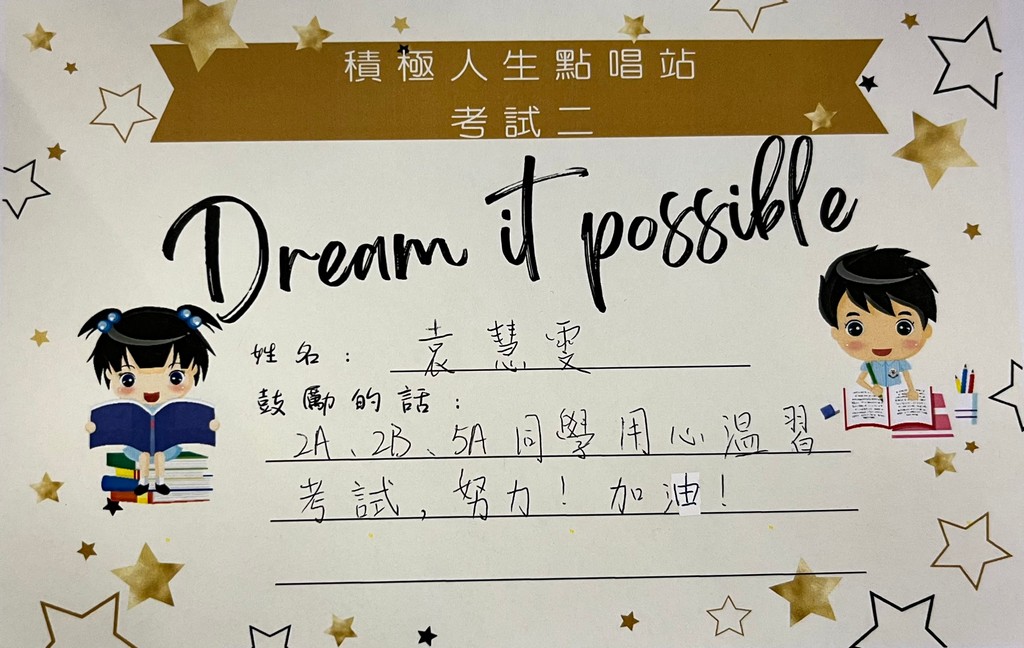 積極人生點唱站
考試二
Dream it possible
姓名：袁慧雯
鼓勵的話：
2A、2B、5A同學用心溫習
考試，努力！加油！